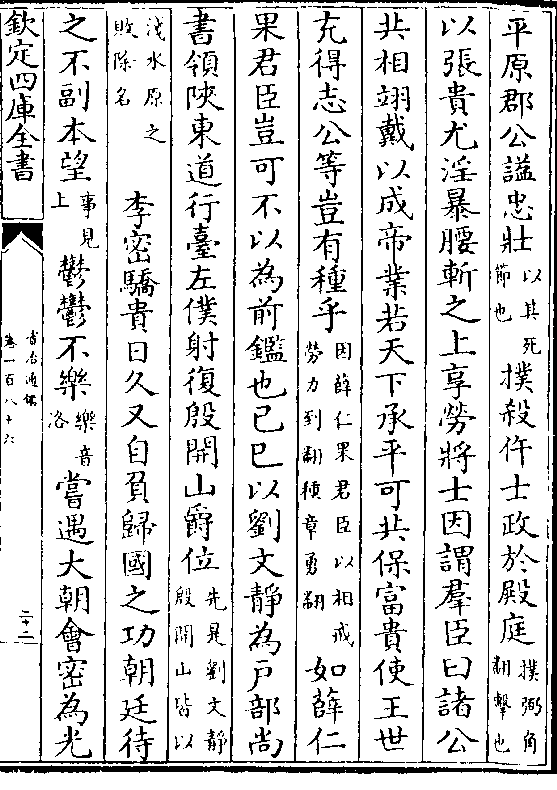 平原郡公諡忠壯以其死節也撲殺仵士政於殿庭撲弼角翻擊也
以張貴尤淫暴腰斬之上享勞將士因謂羣臣曰諸公
共相翊戴以成帝業若天下承平可共保富貴使王世
充得志公等豈有種乎因薛仁果君臣以相戒勞力到翻種章勇翻如薛仁
果君臣豈可不以為前鑑也己巳以劉文靜為戸部尚
書領陜東道行臺左僕射復殷開山爵位先是劉文靜殷開山皆以
淺水原之敗除名李密驕貴日久又自負歸國之功朝廷待
之不副本望事見上鬱鬱不樂樂音洛嘗遇大朝會密為光
欽定四庫全書
資治通鑑
卷一百八十六
二十二